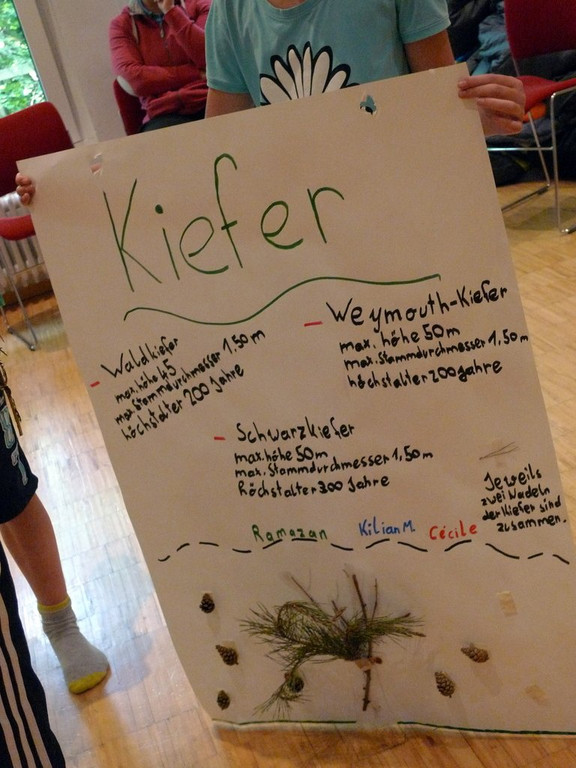 Kiefer
- Waldkiefer
max. höhe 45
max. Stammdurchmesser 1,50 m
höchstalter 200 Jahre
- Weymouth-Kiefer
max. höhe 50m
max. Stammdurchmesser 1,50m
höchstalter 200 Jahre
- Schwarzkiefer
max. höhe 50m
max. Stammdurchmesser 1,50m
Höchstalter 300 Jahre
Jeweils
zwei Nadeln
der Kiefer sind
zusammen.
Ramazan Kilian M. Cécile